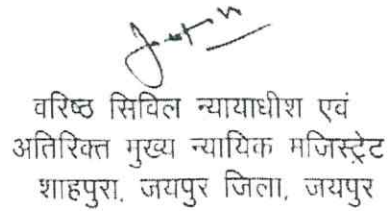 वरिष्ठ सिविल न्यायाधीश एवं
अतिरिक्त मुख्य न्यायिक मजिस्ट्रेट
शाहपुरा, जयपुर जिला, जयपुर